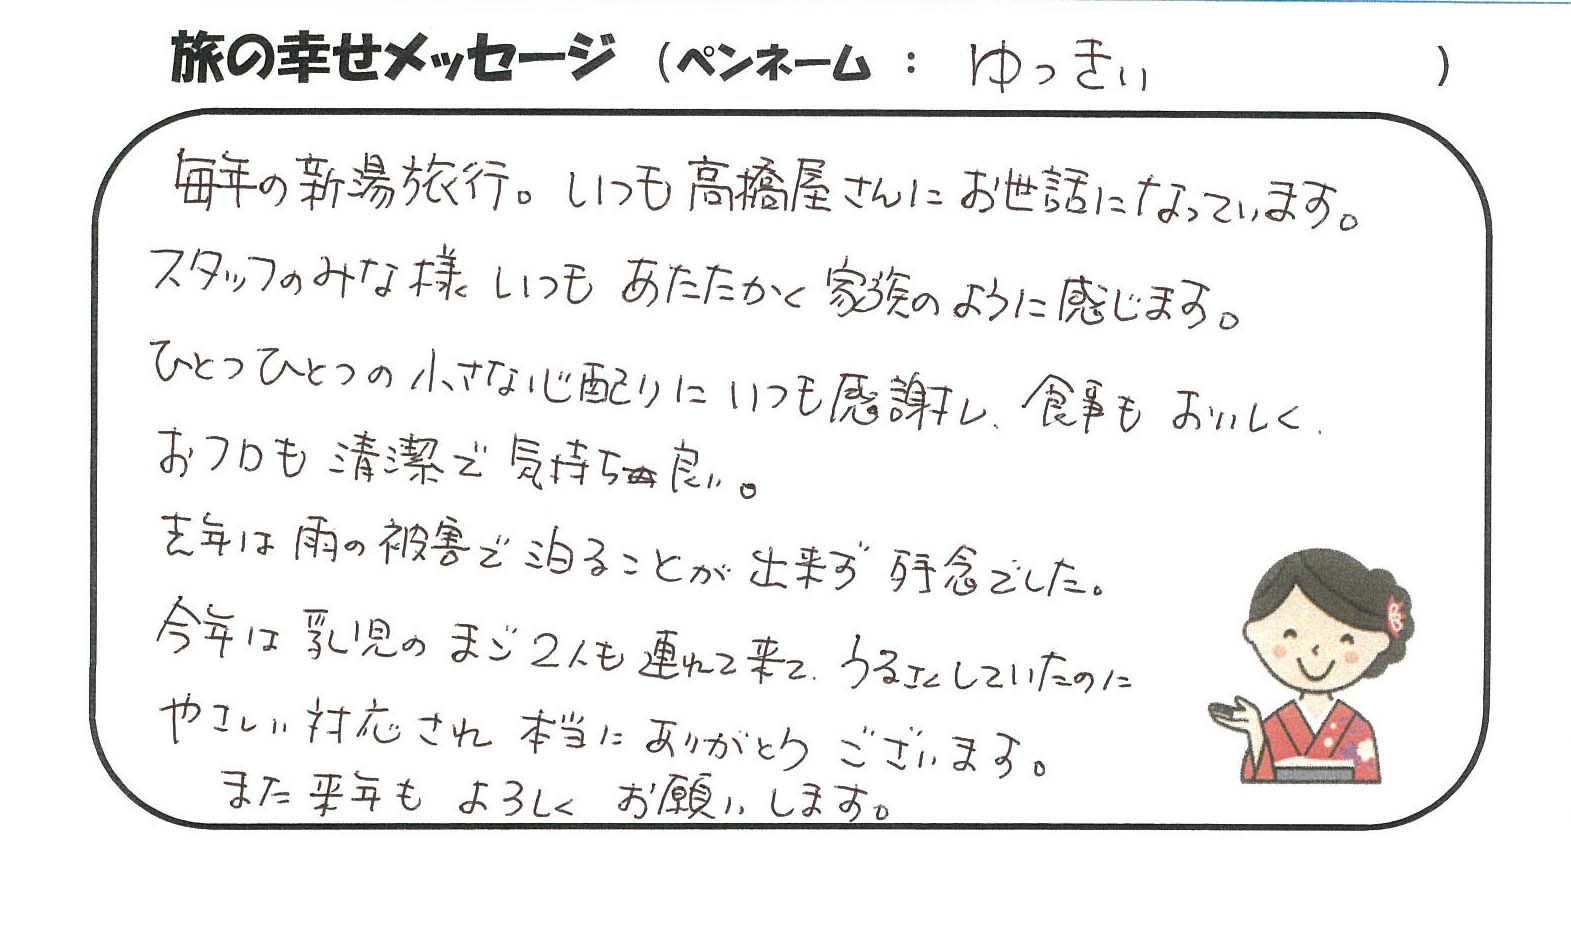 旅の幸せメッセージ （ペンネーム ： ゆっきぃ ）
毎年の新湯旅行。いつも高橋屋さんにお世話になっています。
スタッフのみな様 いつも あたたかく 家族のように感じます。
ひとつひとつの小さな心配りに いつも感謝し、食事も おいしく、
おフロも 清潔で 気持ち良い。
去年は 雨の被害で 泊ることが 出来ず 残念でした。
今年は 乳児の まご2人も 連れて来て、うるさくしていたのに
やさしい対応され 本当に ありがとう ございます。
また来年も よろしく お願いします。